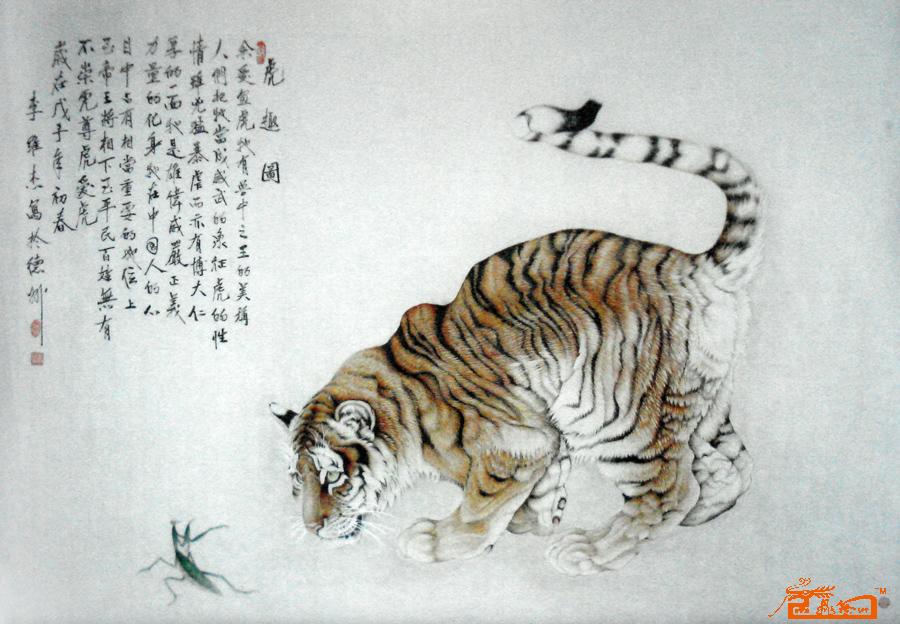 虎趣圖
余爱画虎牠有兽中之王的美稱
人們把牠當成威武的象征虎的性
情雖兇猛暴虐而亦有博大仁
厚的一面牠是雄偉威嚴正義
力量的化身牠在中国人的心
目中占有相当重要的地位上
至帝王将相下至平民百姓無有
不崇虎尊虎爱虎
歲在戊子年初春
李維杰寫於德州
TM